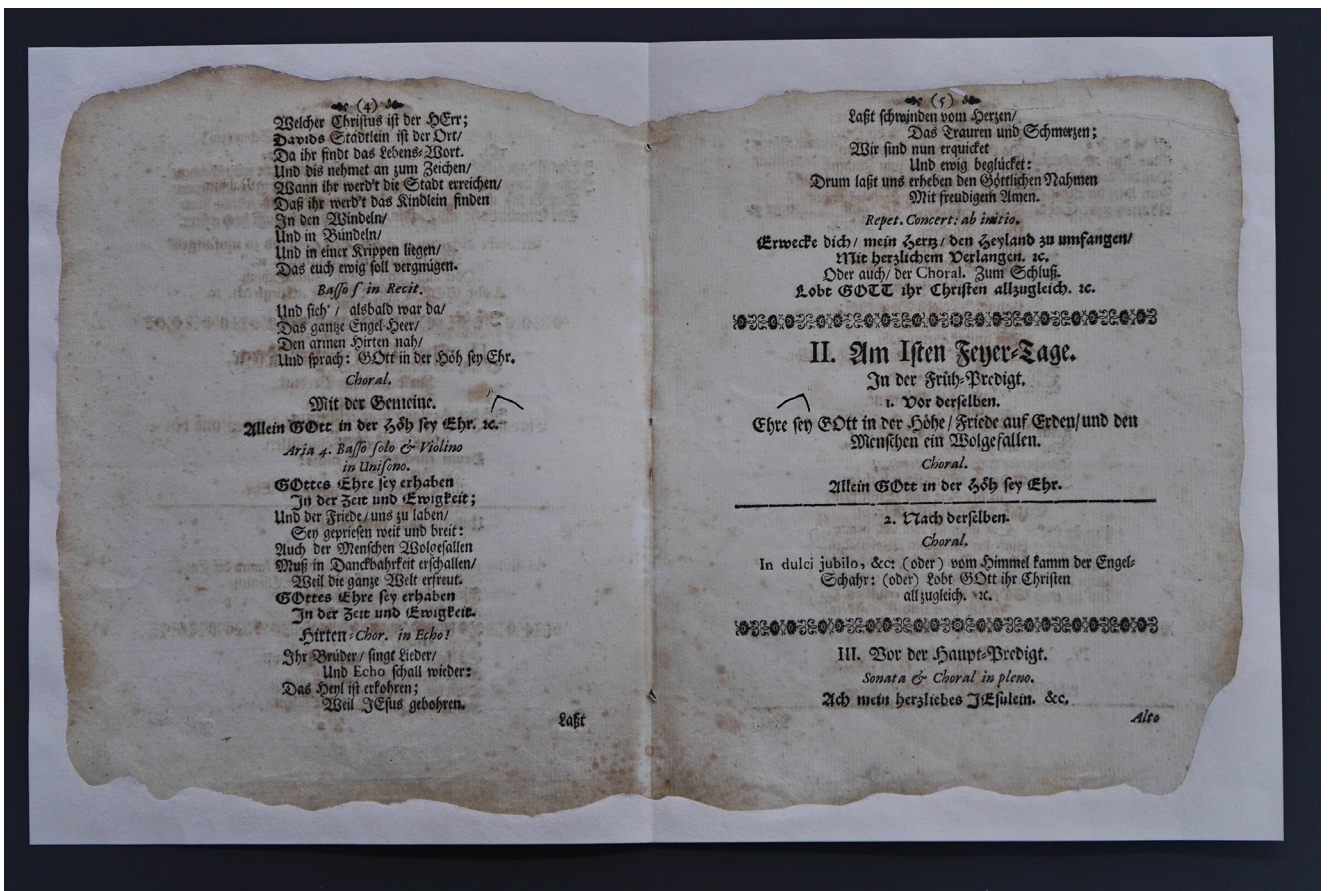 (4)
Welcher Christus ist der HErr;
Davids Städtlein ist der Ort/
Da ihr findt das Lebens-Wort.
Und dis nehmet an zum Zeichen/
Wann ihr werd't die Stadt erreichen/
Daß ihr werd't das Kindlein finden
In den Windeln/
Und in Bündeln/
Und in einer Krippen liegen/
Das euch ewig soll vergnügen.
Basso s in Recit.
Und sieh'/ alsbald war da/
Das gantze Engel-Heer/
Den armen Hirten nah/
Und sprach: GOtt in der Höh sey Ehr.
Choral.
Mit der Gemeine.
Allein GOtt in der Höh sey Ehr. ꝛc.
Aria 4. Basso solo & Violino
in Unisono.
GOttes Ehre sey erhaben
In der Zeit und Ewigkeit;
Und der Friede/uns zu laben/
Sey gepriesen weit und breit:
Auch der Menschen Wolgefallen
Muß in Danckbahrkeit erschallen/
Weil die ganze Welt erfreut.
GOttes Ehre sey erhaben
In der Zeit und Ewigkeit.
Hirten-Chor. in Echo!
Ihr Brüder/ singt Lieder/
Und Echo schall wieder:
Das Heyl ist erkohren;
Weil JEsus gebohren.
Laßt
(5)
Laßt schwinden vom Herzen/
Das Trauren und Schmerzen;
Wir sind nun erquicket
Und ewig beglücket:
Drum laßt uns erheben den Göttlichen Nahmen
Mit freudigem Amen.
Repet. Concert: ab initio.
Erwecke dich/ mein Hertz/ den Heyland zu umfangen/
Mit herzlichem Verlangen. ꝛc.
Oder auch/ der Choral. Zum Schluß.
Lobt GOTT ihr Christen allzugleich. ꝛc.
II. Am Isten Feyer-Tage.
In der Früh-Predigt.
1. Vor derselben.
Ehre sey GOtt in der Höhe/ Friede auf Erden/ und den
Menschen ein Wolgefallen.
Choral.
Allein GOtt in der Höh sey Ehr.
2. Nach derselben.
Choral.
In dulci jubilo, &c: (oder) vom Himmel kamm der Engel-
Schahr: (oder) Lobt GOtt ihr Christen
allzugleich. ꝛc.
III. Vor der Haupt-Predigt.
Sonata & Choral in pleno.
Ach mein herzliebes JEsulein. &c.
Alto